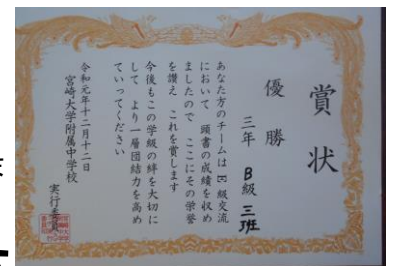 賞状
優勝
三年 B級 三班
あなた方のチームは E級交流
において 頭書の成績を収め
ましたので ここにその栄誉
を讃え これを賞します
今後もこの学級の絆を大切に
して より一層団結力を高め
ていってください
令和元年十二月十二日
宮崎大学附属中学校
実行委員